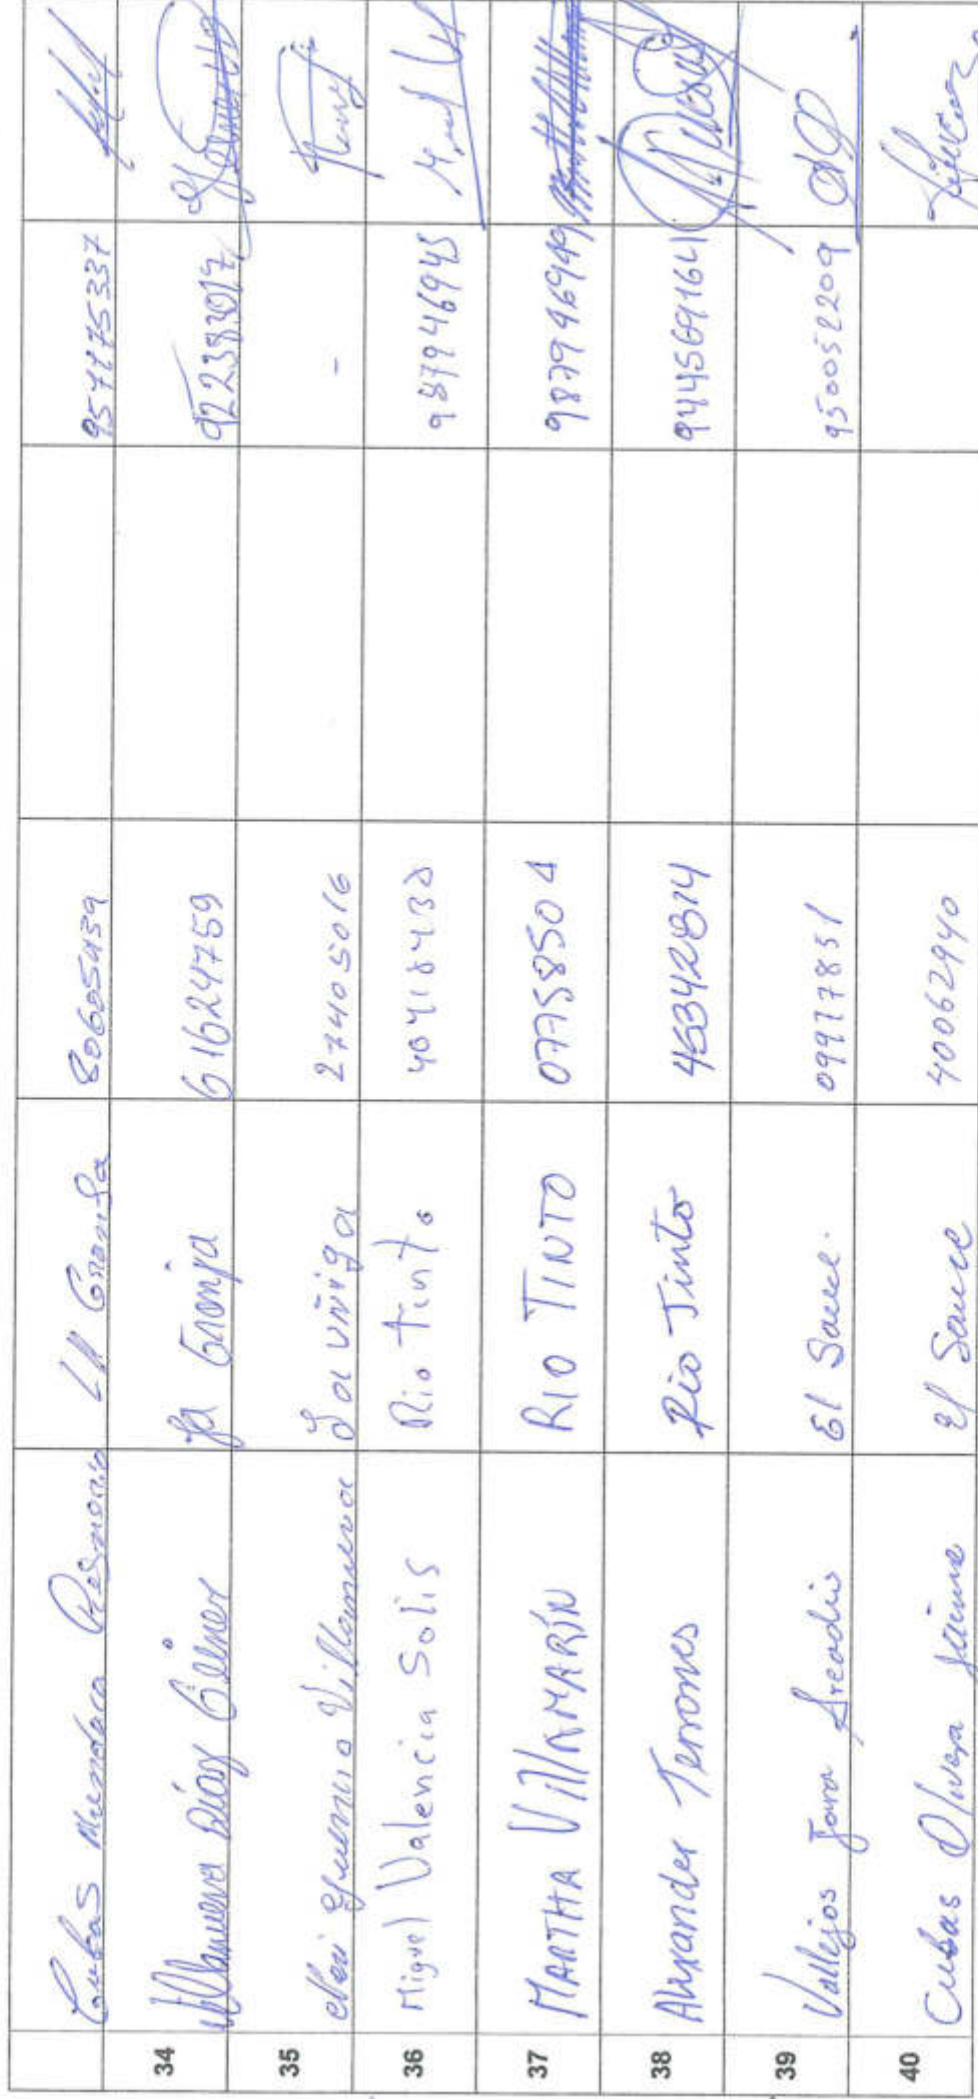 Cubas Mundaca LA Granja 80605459 957775337
34 Villanueva Díaz La Granja 61624759
35 Villanueva La Uniga 27405016 -
36 Miguel Valencia Solis Rio Tinto 40418438 987946945
37 MARTHA VILLAMARÍN RIO TINTO 07758504 987946949
38 Alexander Terrones Rio Tinto 45342814 944569164
39 Vallejos Jara Arcadio El Sauce. 09977831 950052209
40 Cubas Olivera Jaime El Sauce 40062940